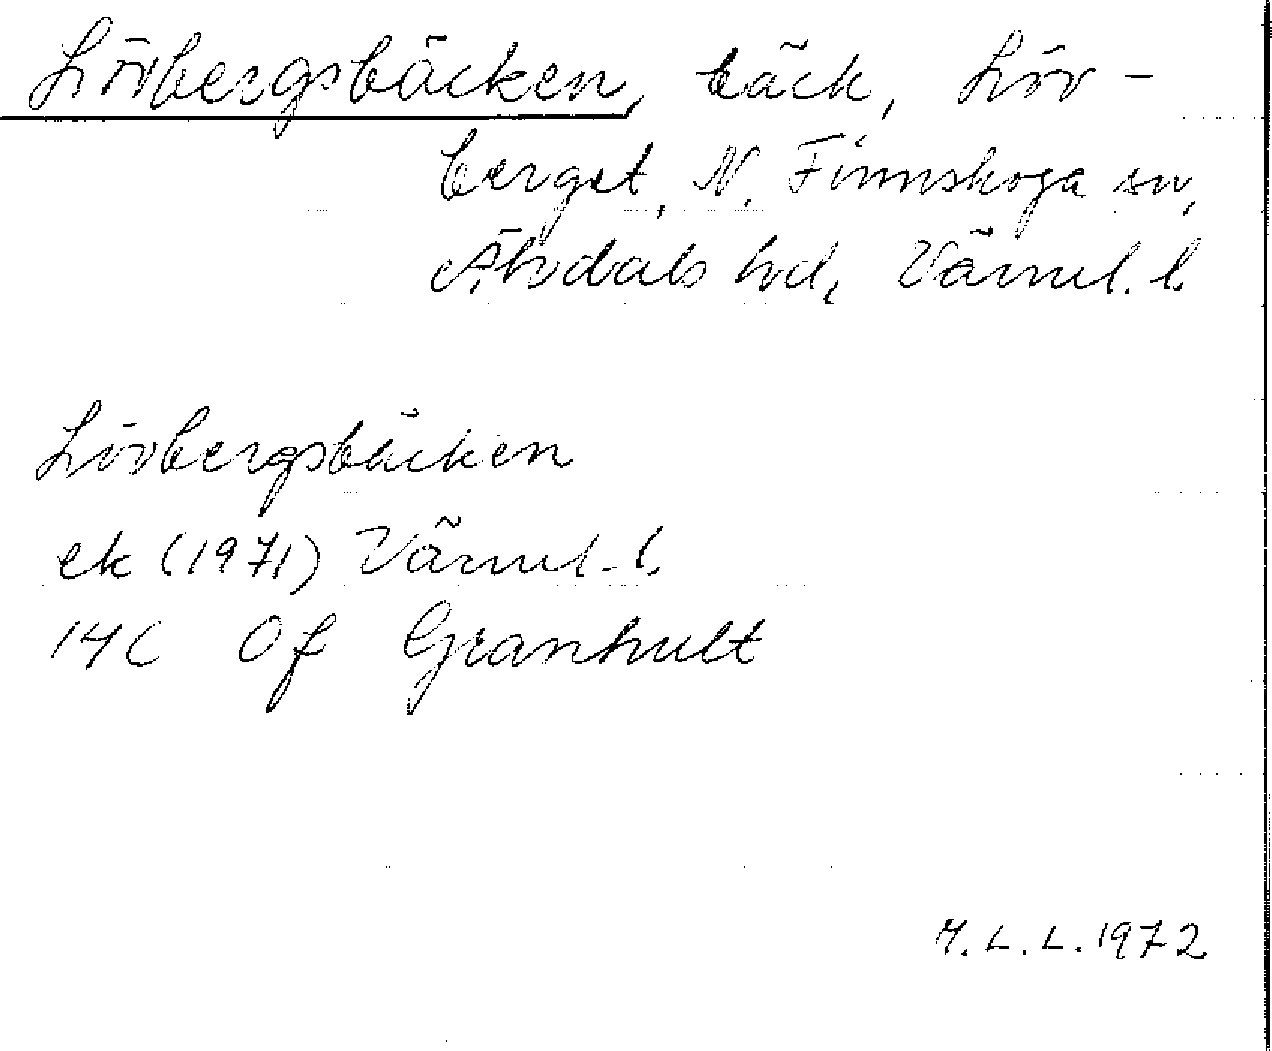 Lövbergsbäcken, bäck, Löv-
berget, N. Finnskoga sn,
Älvdals hd, Värml. l.
Lövbergsbäcken
ek (1971) Värml. l.
14C Of Granhult
M.L.L. 1972